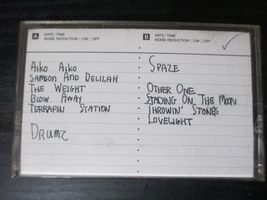 A DATE/TIME
NOISE REDUCTION ☐ON ☐OFF
Aiko Aiko
Samson And Delilah
The Weight
Blow Away
Terrapin Station
Drumz
B DATE/TIME
NOISE REDUCTION ☐ON ☐OFF
Spaze
Other One
Standing On The Moon
Throwin' Stones
Lovelight